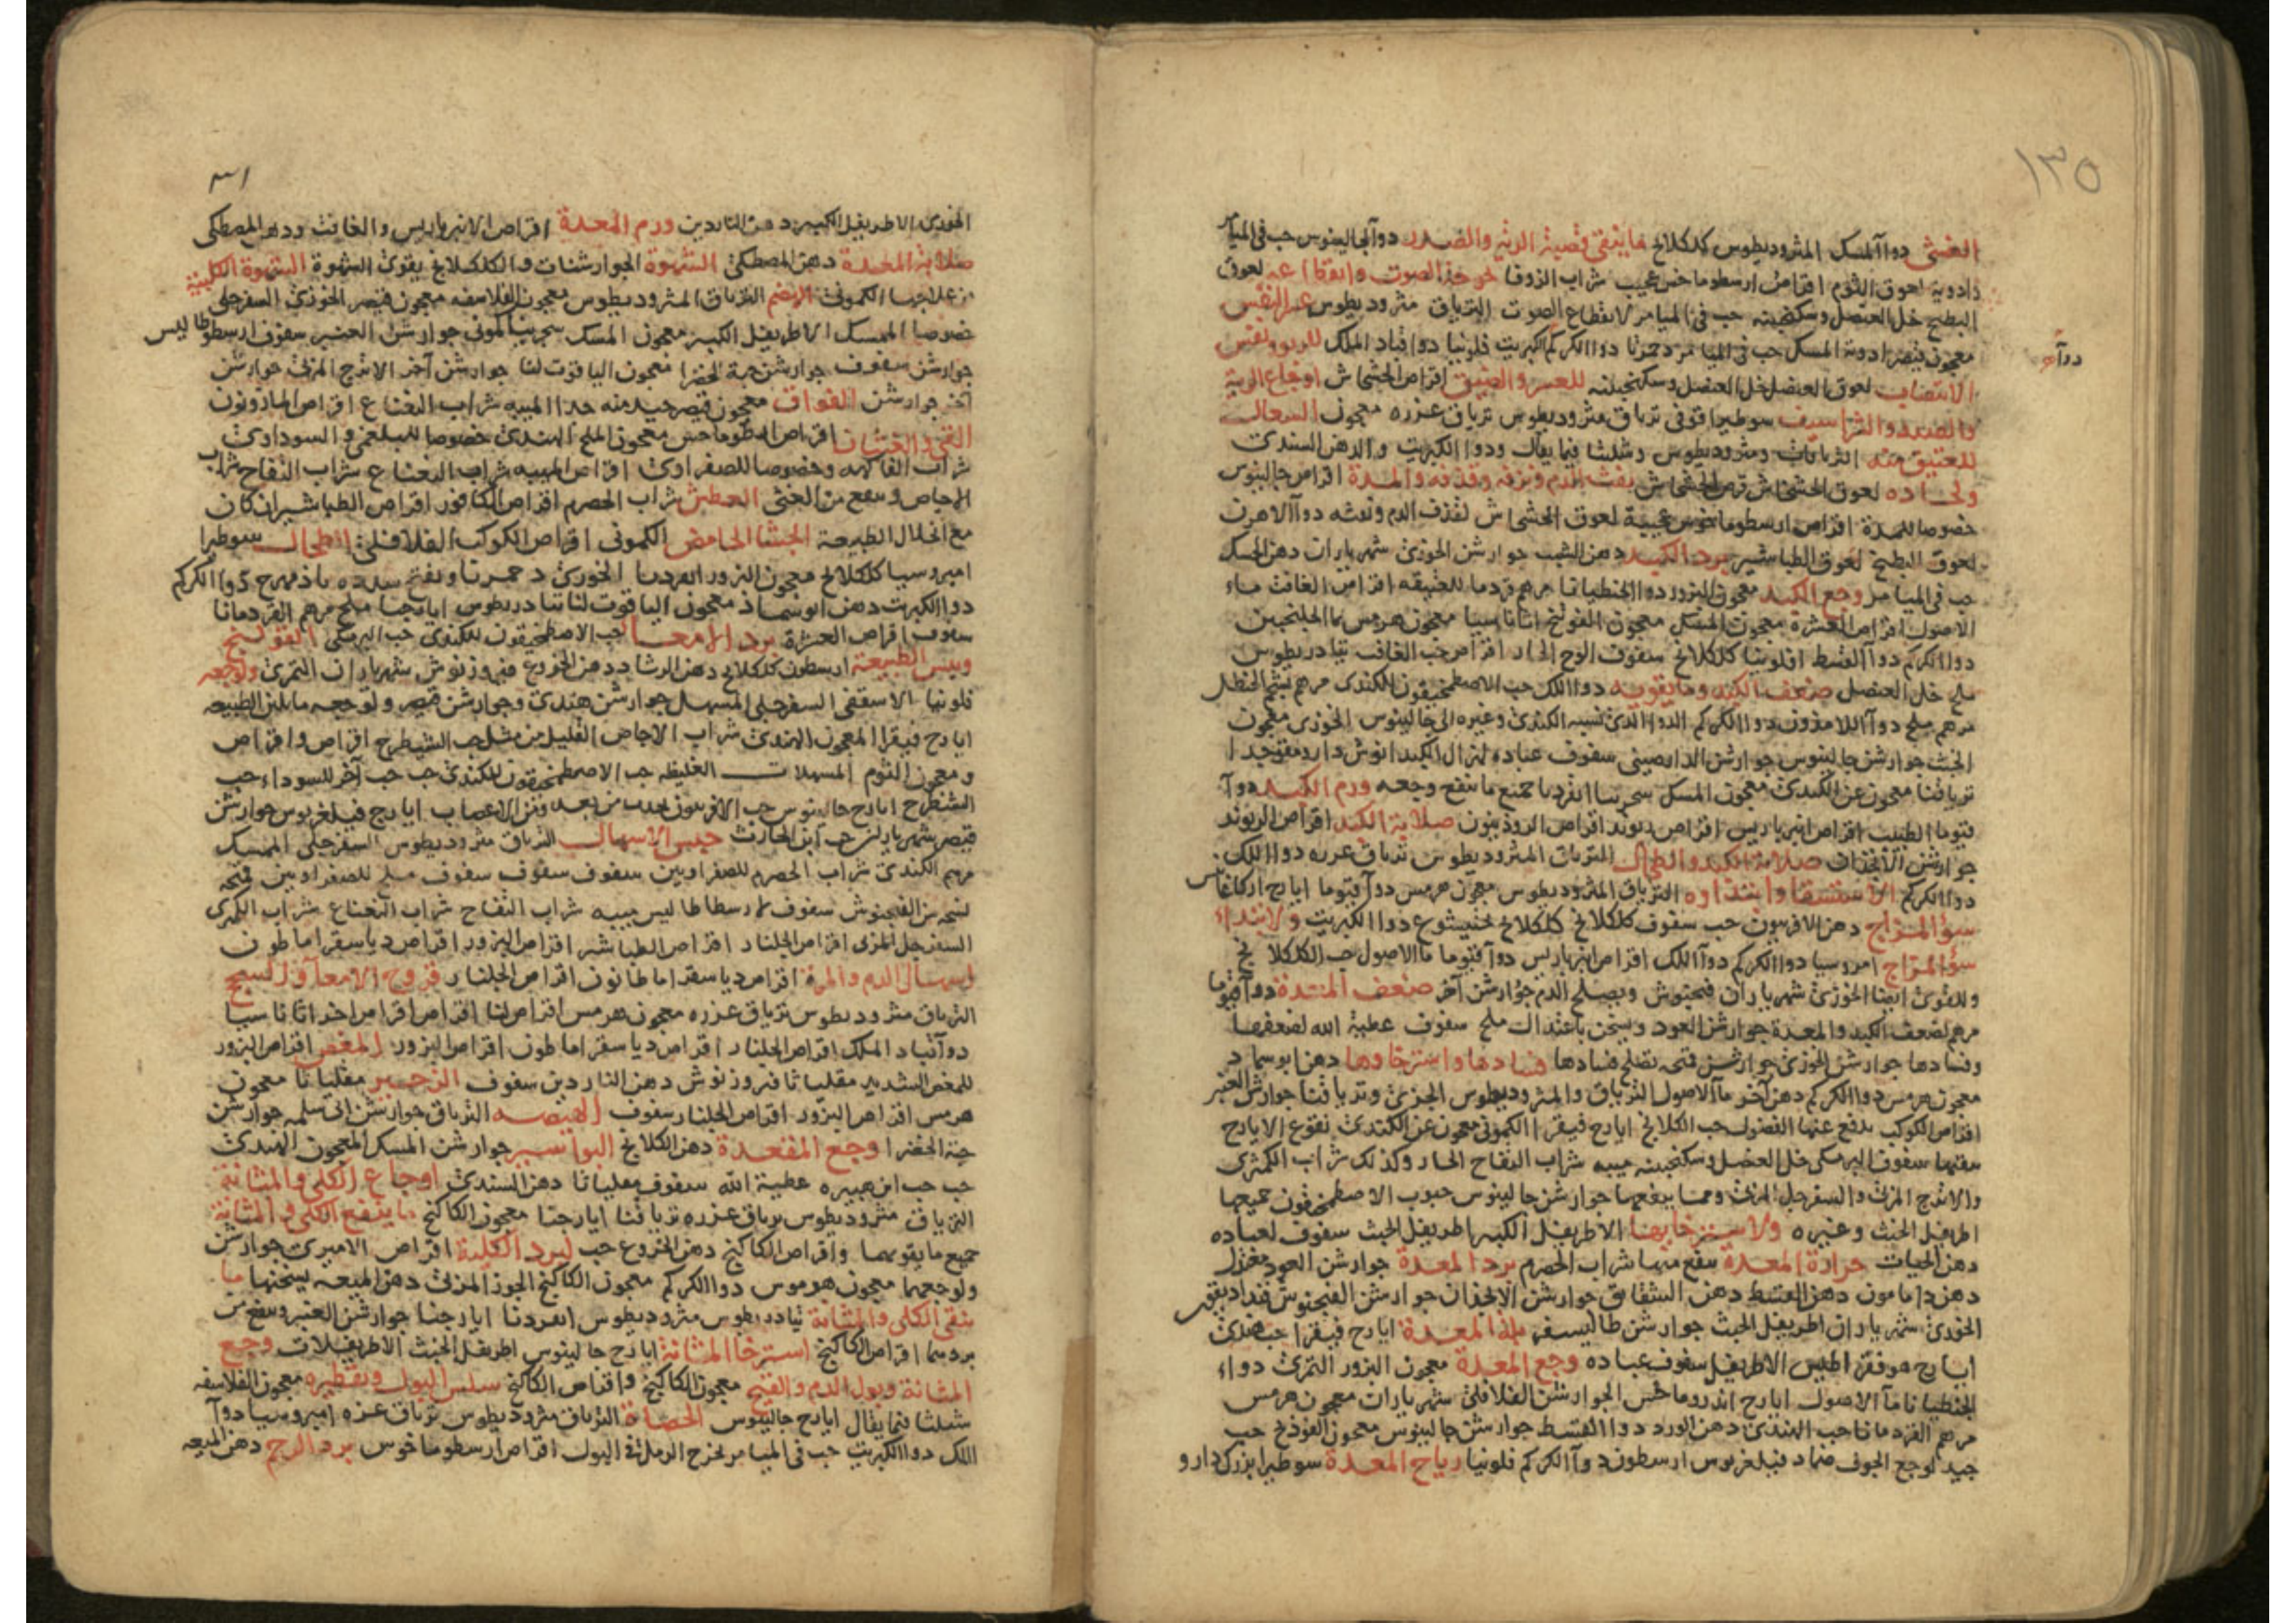 ١٣٥
الغشى دوا المسك المثروديطوس كلكلانج ما ينقى قصبة الرية والصدر دوا لجالينوس حب فى الميامر
وادوية لعوق الثوم اقراص ارسطوماخس عجيب شراب الزوفا خوخة الصوت وانقطاعه لعوق
البطيخ خل العنصل وسكنجبينه حب فى الميامر لانقطاع الصوت الترياق مثروديطوس عسر النفس
معجون قيصر ادوية المسك حب فى الميامر دحمرثا دوا الكركم الكبريت فلونيا دوا قباد الملك للربو ونفس
الانتصاب لعوق العنصل خل العنصل وسكنجبينه للعسر والضيق اقراص الخشخاش اوجاع الرية
والصدر والشراسيف سوطيرا فوفى ترياق مثروديطوس ترياق عزره معجون السعال
للعتيق منه الترياقات ومثروديطوس وشلثا فيما يقال ودوا الكبريت والدهن السندى
ولحاده لعوق الخشخاش قرص الخشخاش نفث الدم ونزفه وقذفه والمدة اقراص جالينوس
خصوصا للمدة اقراص ارسطوماخوس عجيبة لعوق الخشخاش لقذف الدم ونفثه دوا الاهرن
لعوق البطيخ لعوق الطباشير برد الكبد دهن الشب جوارشن الخوزى شهرياران دهن الحسك
حب فى الميامر وجع الكبد معجون البزور دوا الجنطيانا مرهم قردما للضيقه اقراص الغافت ماء
الاصول اقراص العشرة معجون المقل معجون الفوتنج اثاناسيا معجون هرمس ماء الجلنجبين
دوا الكركم دوا القسط افلونيا كلكلانج سفوف الوج الحار اقراص حب الغافت تيادريطوس
ملح خل العنصل ضعف الكبد وما يقويه دوا اللك حب الاصطمخيقون للكندى مرهم شحم الحنظل
مرهم ملح دوا اللامازون دوا الكركم الدوا الذى نسبه الكندى وغيره الى جالينوس الخوزى معجون
الخبث جوارشن جالينوس جوارشن الدارصينى سفوف عباده لهزال الكبد انوش دارو مفوجدا
ترياقنا معجون عن الكندى معجون المسك سجزينا انقرديا جميع ما ينفع وجعه ورم الكبد دوا
قيوما الطبيب اقراص انبرباريس اقراص ريوند اقراص الروذنيون صلابة الكبد اقراص الريوند
جوارشن الانجذان صلابة الكبد والطحال الترياق المثروديطوس ترياق عزره دوا اللك
دوا الكركم الاستسقا وابتداوه الترياق المثروديطوس معجون هرمس دوا قيوما ايارج اركاغانس
سو المزاج دهن الافربيون حب سفوف كلكلانج كلكلانج بختيشوع دوا الكبريت ولابتداء
سو المزاج امروسيا دوا الكركم دوا اللك اقراص انبرباريس دوا قيوما ماء الاصول حب الكلكلانج
وللقوى ايضا الخوزى شهرياران فنجنوش ويصلح الدم جوارشن آخر ضعف المعدة دوا قيوما
مرهم لضعف الكبد والمعدة جوارشن العود ويسخن باعتدال ملح سفوف عطية الله لضعفها
وفسادها جوارشن الخوزى جوارشن فتحه تصلح فسادها فسادها واسترخاوها دهن ابوسماد
معجون هرمس دوا الكركم دهن آخر ماء الاصول الترياق والمثروديطوس الجزى وترياقنا جوارشن العنبر
اقراص الكوكب يدفع عنها الفضول حب الكلكلانج ايارج فيقرا الكمونى معجون عن الكندى نقوع الايارج
سقمها سفوف البرمكى خل العنصل وسكنجبينه ميبه شراب التفاح الحار وكذلك شراب الكمثرى
والاترج المربى والسفرجل المربى ومما ينفعها جوارشن جالينوس حبوب الاصطمخيقون جميعها
اطريفل الخبث وغيره ولاسترخايها الاطريفل الكبير اطريفل الخبث سفوف لعباده
دهن الحيات حرارة المعدة ينفع منها شراب الحصرم برد المعدة جوارشن العود مغزل
دهن دامامون دهن القسط دهن الشقايق جوارشن الانجذان جوارشن الفنجنوش قنداديقون
الخوزى شهرياران اطريفل الخبث جوارشن طاليسفر بلة المعدة ايارج فيقرا حب هندى
ايارج هوفقراطيس الاطريفل سفوف عباده وجع المعدة معجون البزور التمرى دواء
الجنطيانا ماء الاصول ايارج اندروماخس الجوارشن الفلافلى شهرياران معجون هرمس
مرهم القردمانا حب الهندى دهن الورد دوا القسط جوارشن جالينوس معجون الفوذنج حب
جيد لوجع الجوف ضماد فيلغريوس ارسطون دوا الكركم فلونيا رياح المعدة سوطيرا بزرك دارو
الخوزى الاطريفل الكبير دهن الناردين ورم المعدة اقراص الانبرباريس والغافت ودهن المصطكى
صلابة المعدة دهن المصطكى الشهوة الجوارشنات والكلكلانج يقوى الشهوة الشهوة الكلبية
من علاجها الكمونى الهضم الترياق المثروديطوس معجون الفلاسفه معجون قيصر الخوزى السفرجلى
خصوصا الممسك الاطريفل الكبير معجون المسك سجرينيا كمونى جوارشن العنبر سفوف ارسطوطاليس
جوارشن سفوف جوارشن حبة الخضرا معجون الياقوت لنا جوارشن آخر الاترج المربى جوارشن
آخر جوارشن الفواق معجون قيصر جيد منه جدا الميبه شراب النعناع اقراص المازريون
القى والغثيان اقراص ارسطوماخس معجون الملح الهندى خصوصا للبلغمى والسوداوى
شراب الفاكهه وخصوصا للصفراوى اقراص الميبه شراب النعناع شراب التفاح شراب
الاجاص وينفع من الغثى العطش شراب الحصرم اقراص الكافور اقراص الطباشير ان كان
مع انحلال الطبيعة الجشا الحامض الكمونى اقراص الكوكب الفلافلى الطحال سوطيرا
امبروسيا كلكلانج معجون البزور انقرديا الخوزى دحمرثا ويفتح سدده باذمهرج دوا الكركم
دوا الكبريت دهن ابوسماذ معجون الياقوت لنا تيادريطوس ايارجنا ملح مرهم القردمانا
سفوف اقراص العشرة برد الامعا حب الاصطمخيقون للكندى حب البرمكى القولنج
ويبس الطبيعة ارسطون كلكلانج دهن الرشاد دهن الخروع فيروزنوش شهرياران التمرى ولوجعه
فلونيا الاسقفى السفرجلى المسهل جوارشن هندى وجوارشن قيصر ولوجعه ما يلين الطبيعه
ايارج فيقرا المعجون الهندى شراب الاجاص القليل من مثل حب الشيطرج اقراص واقراص
ومعجون الثوم المسهلات الغليظه حب الاصطمخيقون للكندى حب حب آخر للسوداء حب
الشيطرج ايارج جالينوس حب الافربيون يجذب من بعد ومن الاعصاب ايارج فيلغريوس جوارشن
قيصر شهرياران حب ابن الحارث حبس الاسهال الترياق مثروديطوس السفرجلى الممسك
مرهم الكندى شراب الحصرم للصفراويين سفوف سفوف سفوف ملح للصفراويين فتحه
نسخة من الفنجنوش سفوف لارسطاطاليس ميبه شراب التفاح شراب النعناع شراب الكمثرى
السفرجل المربى اقراص الجلنار اقراص الطباشير اقراص البزور اقراص دياسقراماطون
اسهال الدم والمرة اقراص دياسقراماطانون اقراص الجلنار قروح الامعا والسحج
الترياق مثروديطوس ترياق عزره معجون هرمس اقراص لنا اقراص اقراص اخر اثاناسيا
دوا قباد الملك اقراص الجلنار اقراص دياسقراماطون اقراص البزور المغص اقراص البزور
للمغص الشديد مقلياثا فيروزنوش دهن الناردين سفوف الزحير مقلياثا معجون
هرمس اقراص البزور اقراص الجلنار سفوف الهيضه الترياق جوارشن ابى سلمه جوارشن
حبة الخضرا وجع المقعدة دهن الكلكلانج البواسير جوارشن المسك المعجون الهندى
حب حب ابن هبيره عطية الله سفوف مقلياثا دهن السندى اوجاع الكلى والمثانة
الترياق مثروديطوس ترياق عزره ترياقنا ايارجنا معجون الكاكنج ما ينفع الكلى والمثانة
جميع ما يقويهما واقراص الكاكنج دهن الخروع حب لبرد الكلية اقراص الاميرى جوارشن
ولوجعهما معجون هرموس دوا الكركم معجون الكاكنج الجوز المربى دهن الميعه يسخنها ما
ينقى الكلى والمثانة تيادريطوس مثروديطوس انقرديا ايارجنا جوارشن العنبر وينفع من
بردهما اقراص الكاكنج استرخا المثانة ايارج جالينوس اطريفل الخبث الاطريفلات وجع
المثانة وبول الدم والقيح معجون الكاكنج واقراص الكاكنج سلس البول وتقطيره معجون الفلاسفه
شلثا فيما يقال ايارج جالينوس الحصاة الترياق مثروديطوس ترياق عزره امبروسيا دوا
اللك دوا الكبريت حب فى الميامر يخرج الرمل فى البول اقراص ارسطوماخوس برد الرحم دهن الميعه